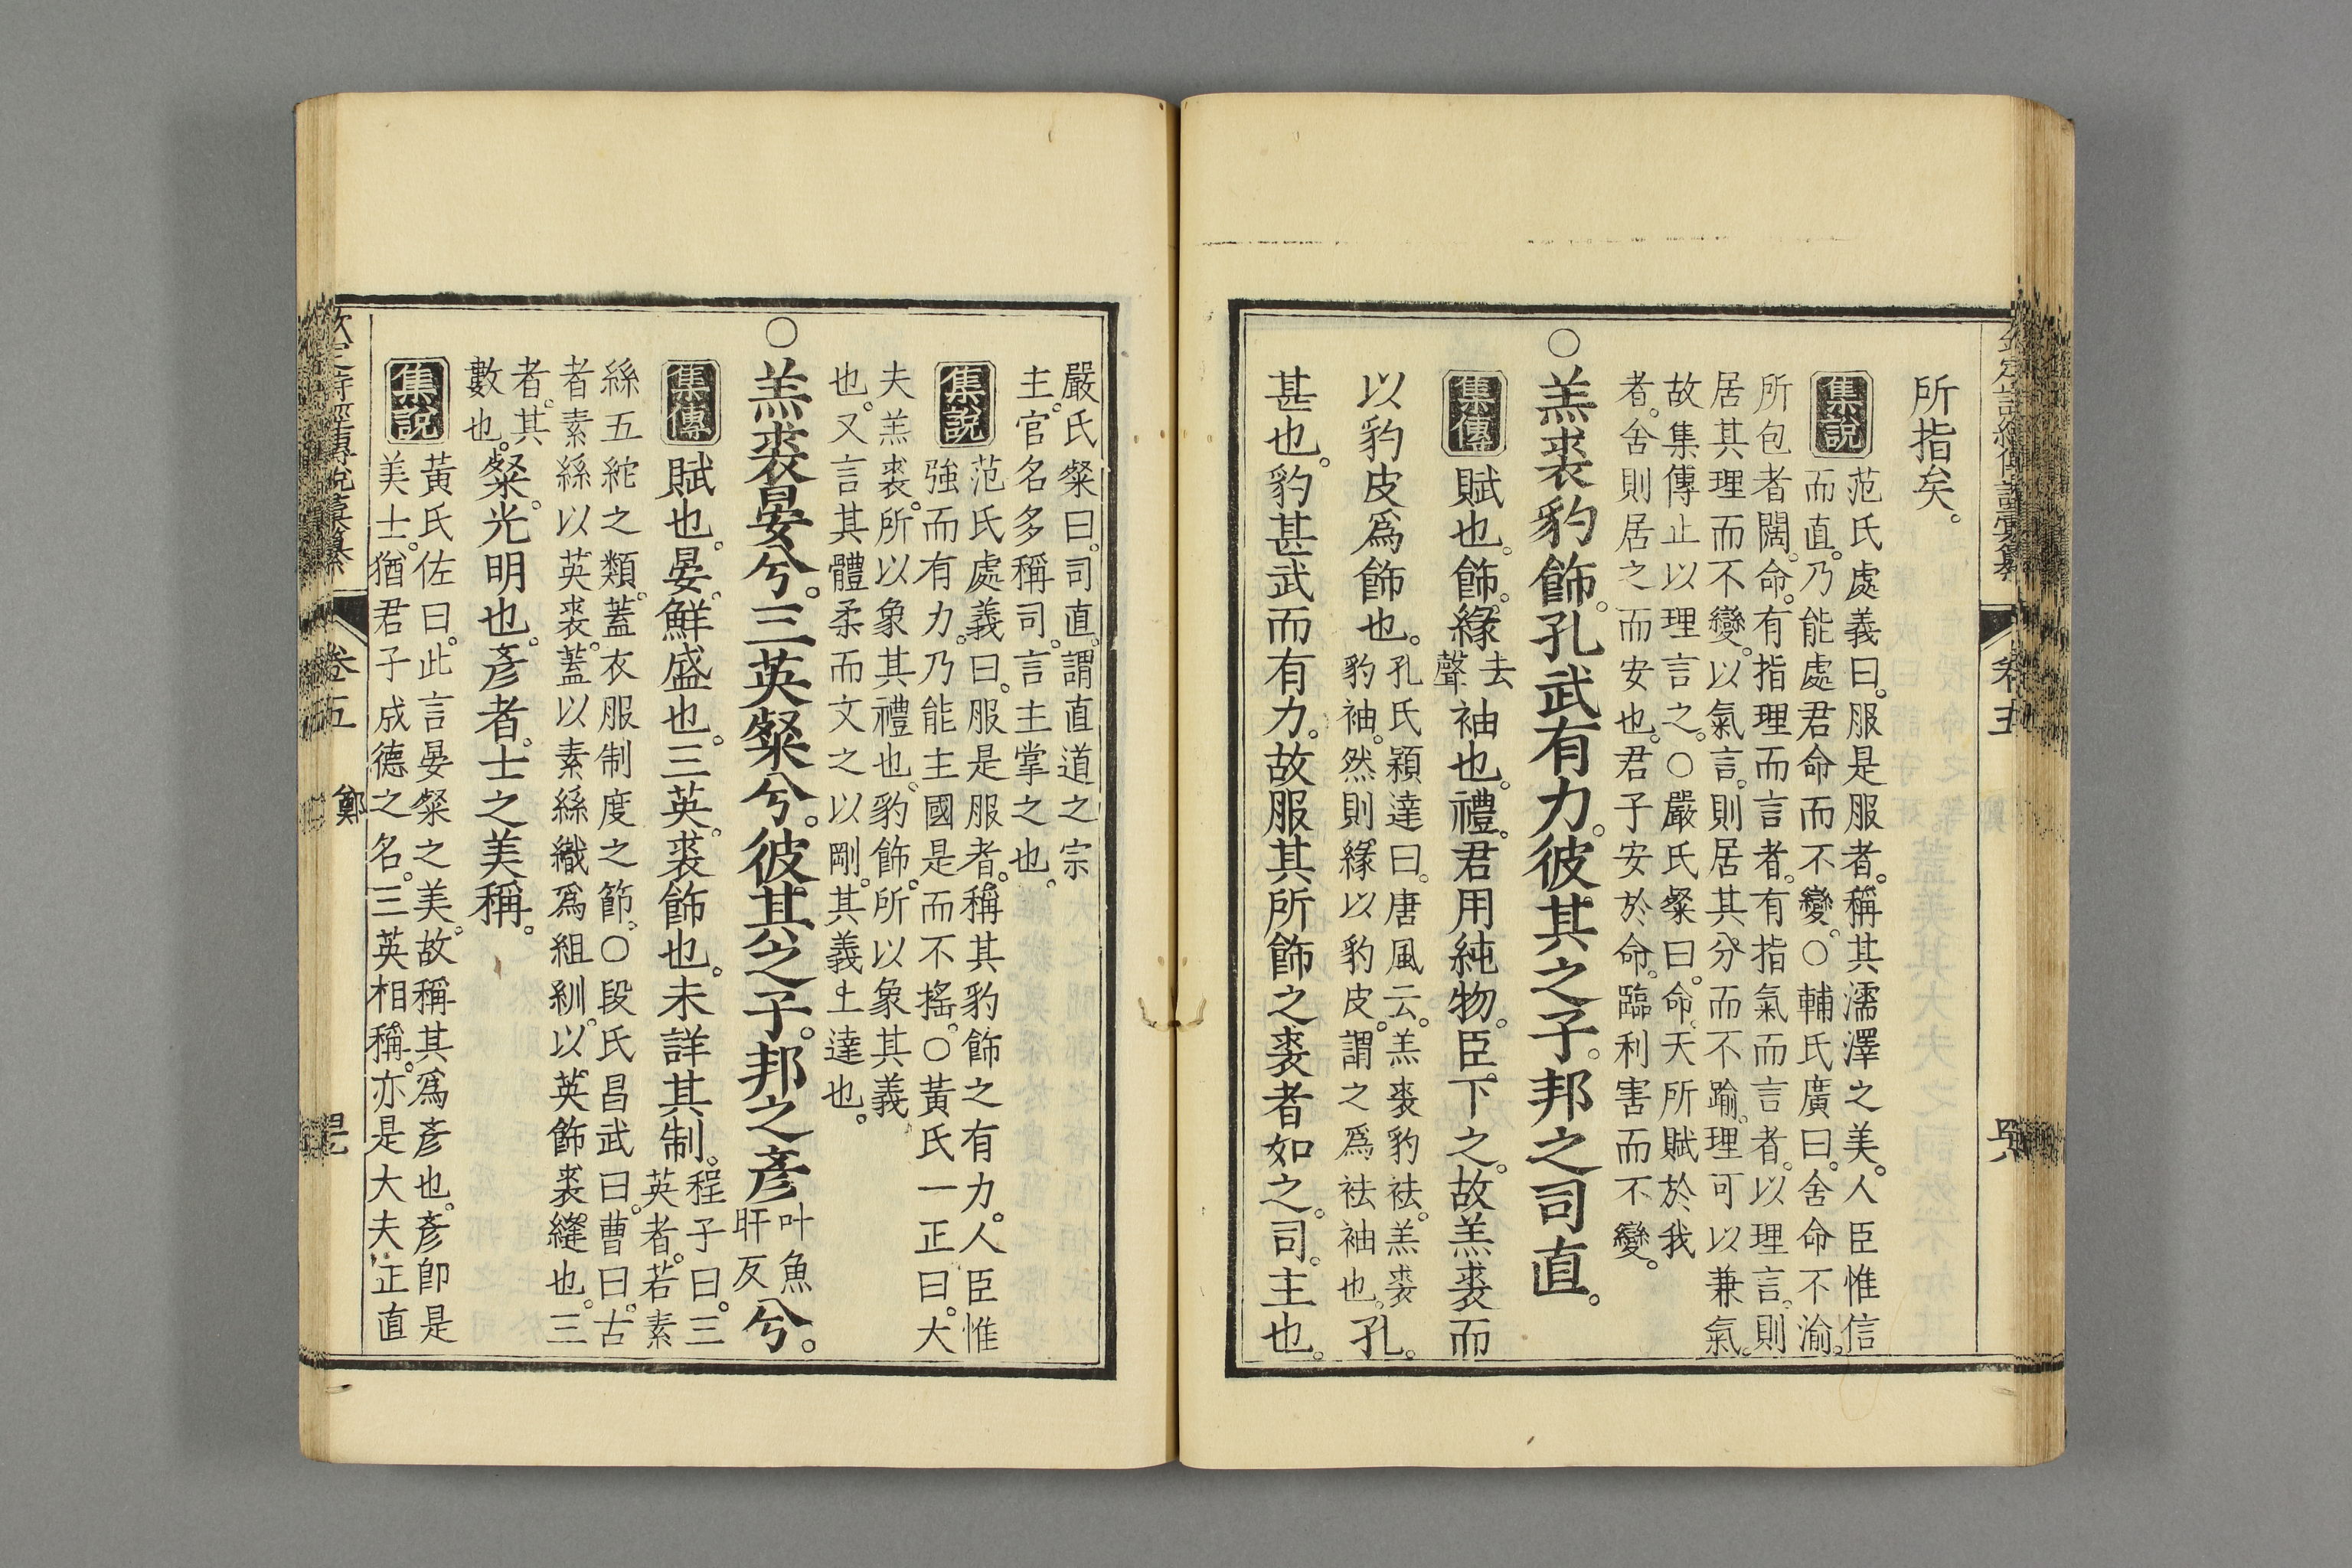 所指矣。
集說
范氏處義曰。服是服者。稱其濡澤之美。人臣惟信
而直。乃能處君命而不變。○輔氏廣曰。舍命不渝。
所包者闊。命。有指理而言者。有指氣而言者。以理言。則
居其理而不變。以氣言。則居其分而不踰。理可以兼氣。
故集傳止以理言之。○嚴氏粲曰。命。天所賦於我
者。舍則居之而安也。君子安於命。臨利害而不變。
○羔裘豹飾。孔武有力。彼其之子。邦之司直。
集傳
賦也。飾。緣去聲袖也。禮。君用純物。臣下之。故羔裘而
以豹皮爲飾也。孔氏穎達曰。唐風云。羔裘豹袪。羔裘豹袖。然則緣以豹皮。謂之爲袪袖也。孔。
甚也。豹甚武而有力。故服其所飾之裘者如之。司。主也。
嚴氏粲曰。司直。謂直道之宗
主。官名多稱司。言主掌之也。
集說
范氏處義曰。服是服者。稱其豹飾之有力。人臣惟
強而有力。乃能主國是而不搖。○黃氏一正曰。大
夫羔裘。所以象其禮也。豹飾。所以象其義
也。又言其體柔而文之以剛。其義士達也。
○羔裘晏兮。三英粲兮。彼其之子。邦之彥叶魚肝反兮。
集傳
賦也。晏。鮮盛也。三英。裘飾也。未詳其制。程子曰。三英者。若素
絲五紽之類。蓋衣服制度之節。○段氏昌武曰。曹曰。古
者素絲以英裘。蓋以素絲織爲組紃。以英飾裘縫也。三
者。其數也。粲。光明也。彥者。士之美稱。
集說
黃氏佐曰。此言晏粲之美。故稱其爲彥也。彥卽是
美士。猶君子成德之名。三英相稱。亦是大夫正直
欽定詩經傳說彙纂
卷五
鄭